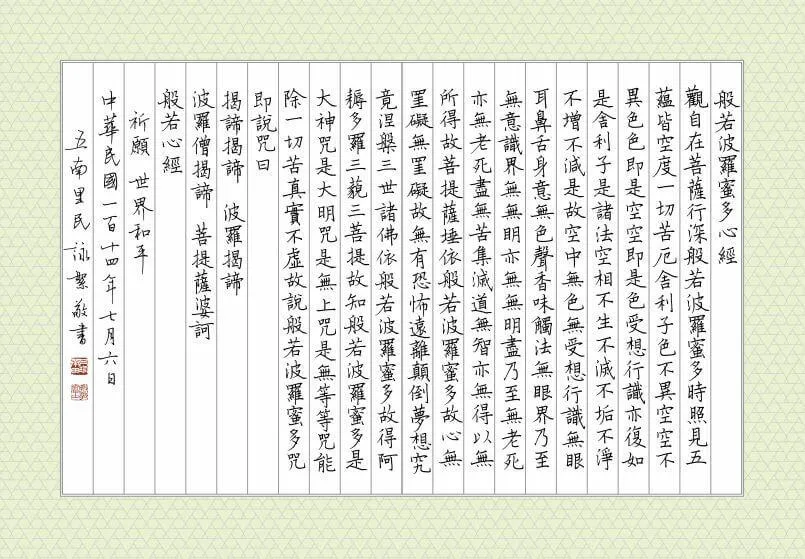 般若波羅蜜多心經
觀自在菩薩行深般若波羅蜜多時照見五
蘊皆空度一切苦厄舍利子色不異空空不
異色色即是空空即是色受想行識亦復如
是舍利子是諸法空相不生不滅不垢不淨
不增不減是故空中無色無受想行識無眼
耳鼻舌身意無色聲香味觸法無眼界乃至
無意識界無無明亦無無明盡乃至無老死
亦無老死盡無苦集滅道無智亦無得以無
所得故菩提薩埵依般若波羅蜜多故心無
罣礙無罣礙故無有恐怖遠離顛倒夢想究
竟涅槃三世諸佛依般若波羅蜜多故得阿
耨多羅三藐三菩提故知般若波羅蜜多是
大神咒是大明咒是無上咒是無等等咒能
除一切苦真實不虛故說般若波羅蜜多咒
即說咒曰
揭諦揭諦 波羅揭諦
波羅僧揭諦 菩提薩婆訶
般若心經
祈願 世界和平
中華民國一百十四年七月六日
五南里民 詠絜敬書